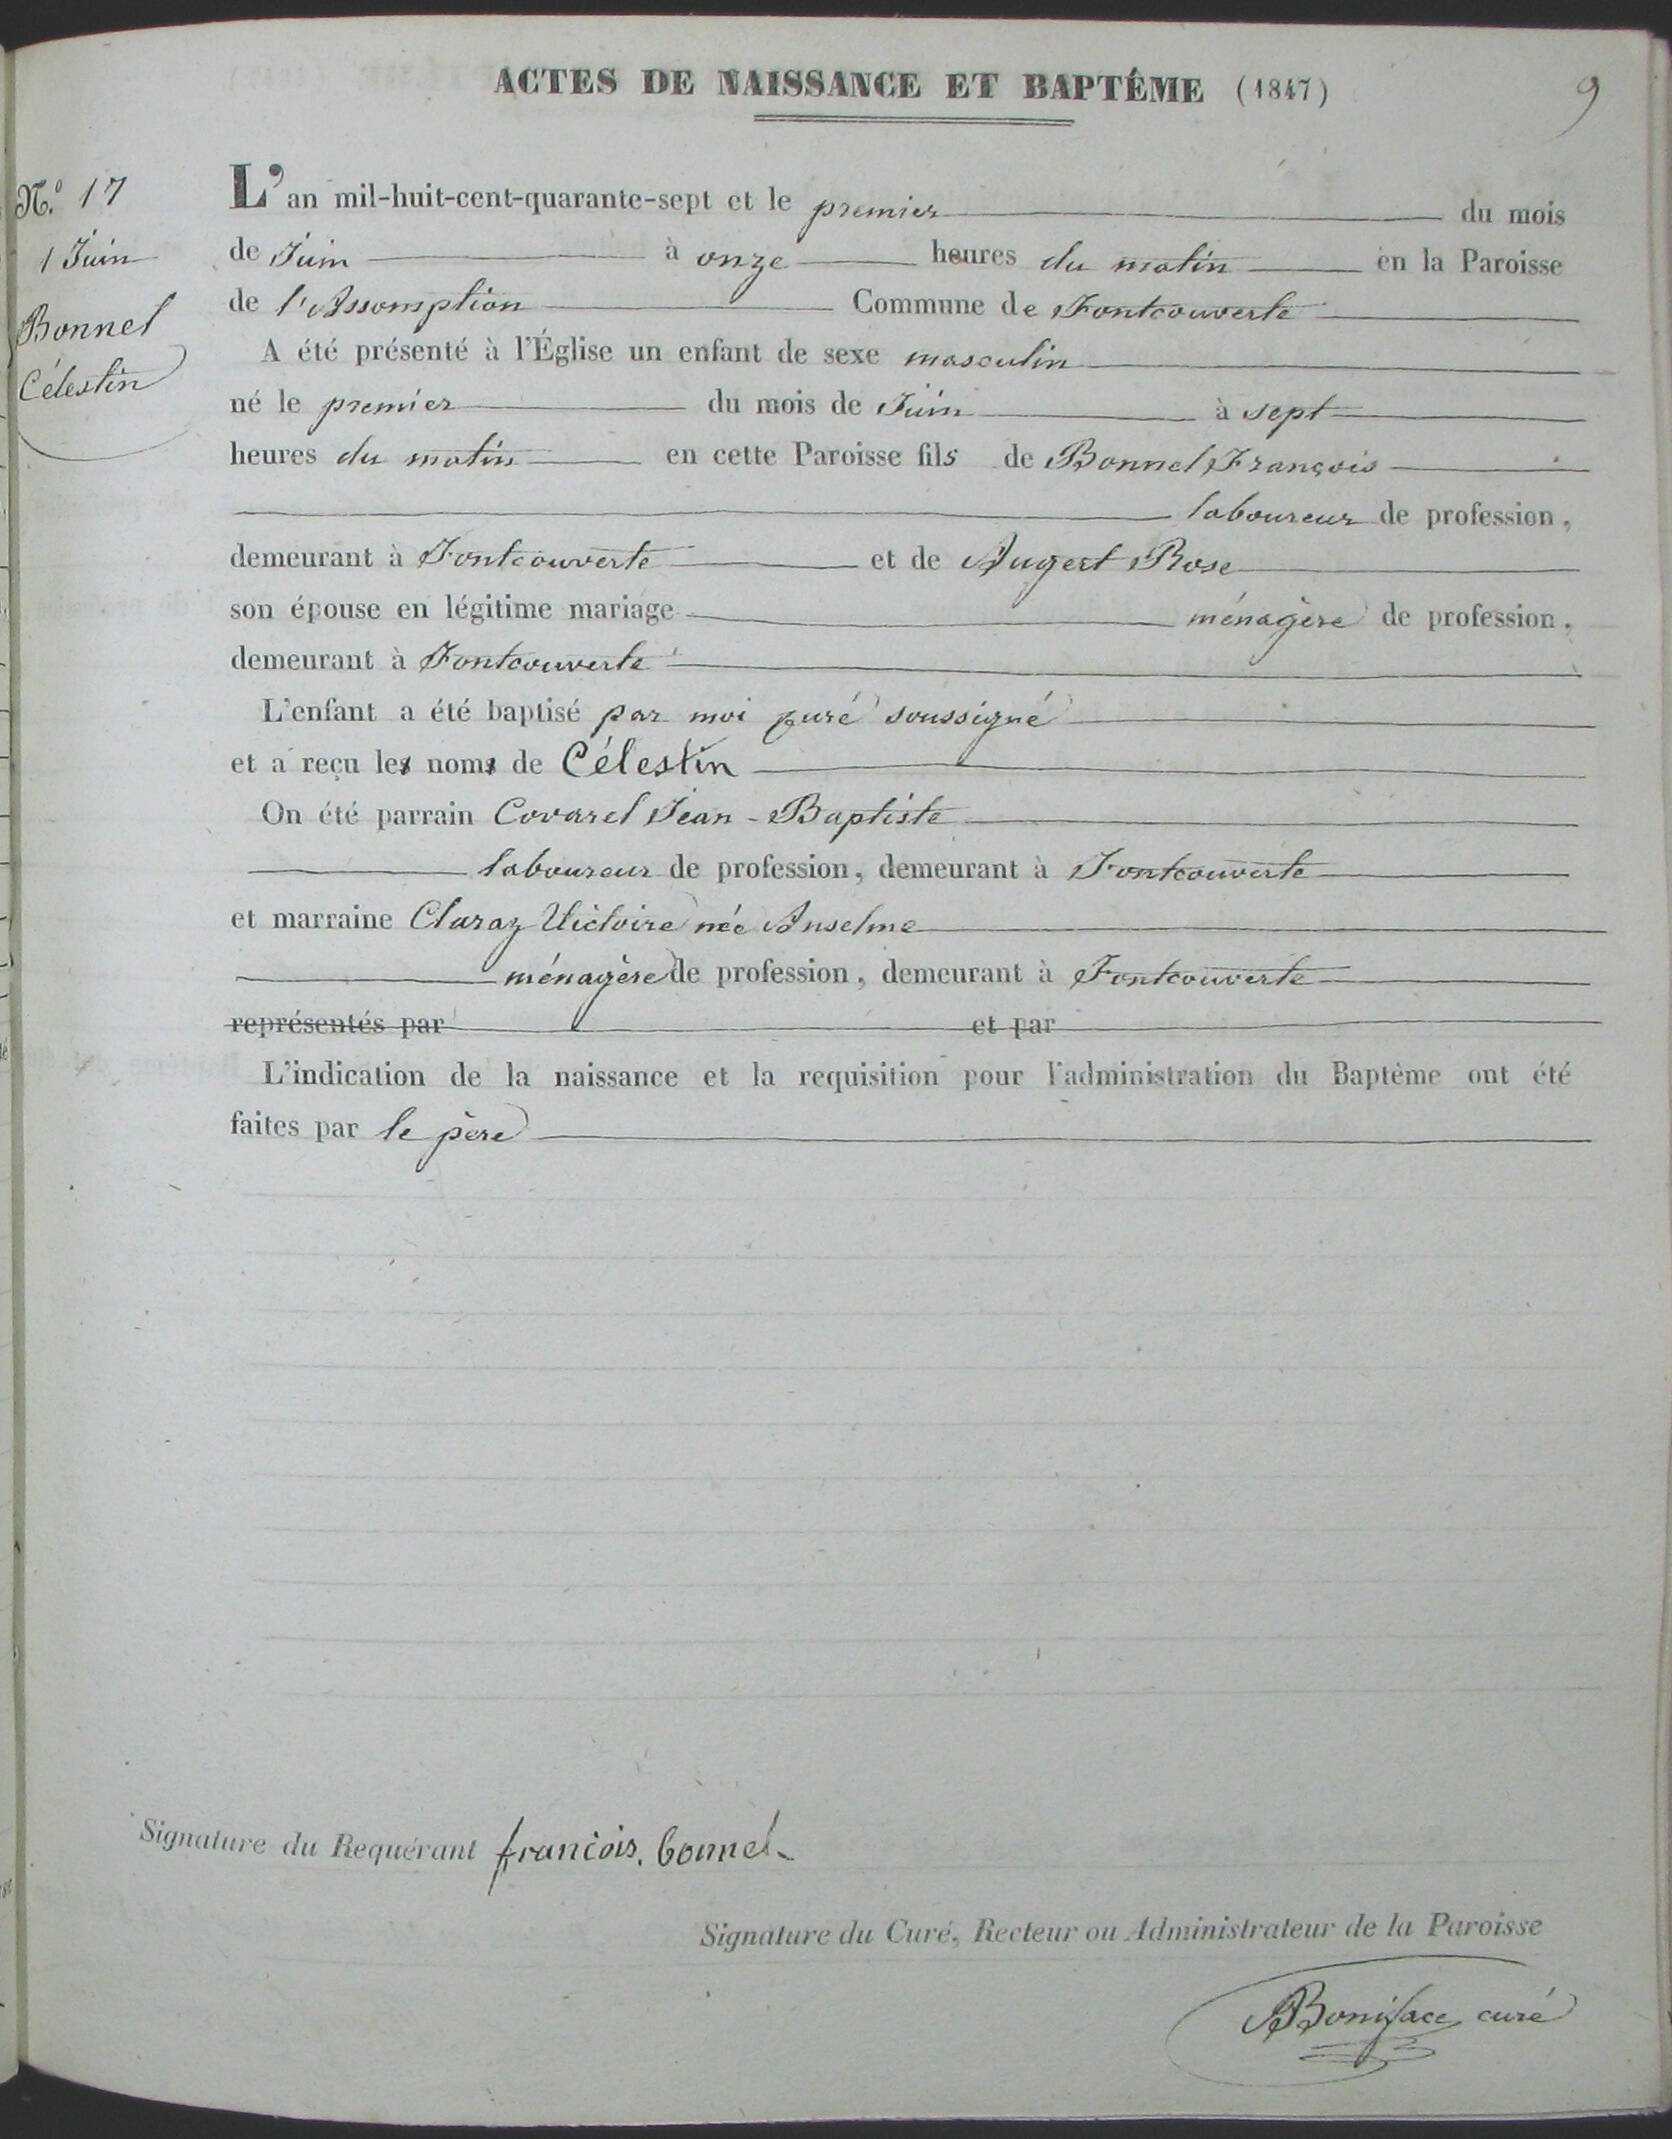 ACTES DE NAISSANCE ET BAPTÊME (1847)
9
N.º 17
1 Juin
Bonnel
Célestin
L'an mil-huit-cent-quarante-sept et le premier du mois
de Juin à onze heures du matin en la Paroisse
de l'Assomption Commune de Fontcouverte
A été présenté à l'Église un enfant de sexe masculin
né le premier du mois de Juin à sept
heures du matin en cette Paroisse fils de Bonnel François
laboureur de profession,
demeurant à Fontcouverte et de Augert Rose
son épouse en légitime mariage ménagère de profession,
demeurant à Fontcouverte
L'enfant a été baptisé par moi curé soussigné
et a reçu les noms de Célestin
On été parrain Covarel Jean-Baptiste
laboureur de profession, demeurant à Fontcouverte
et marraine Claraz Victoire née Anselme
ménagère de profession, demeurant à Fontcouverte
représentés par et par
L'indication de la naissance et la requisition pour l'administration du Baptème ont été
faites par le père
Signature du Requérant françois. bonnel
Signature du Curé, Recteur ou Administrateur de la Paroisse
Boniface curé